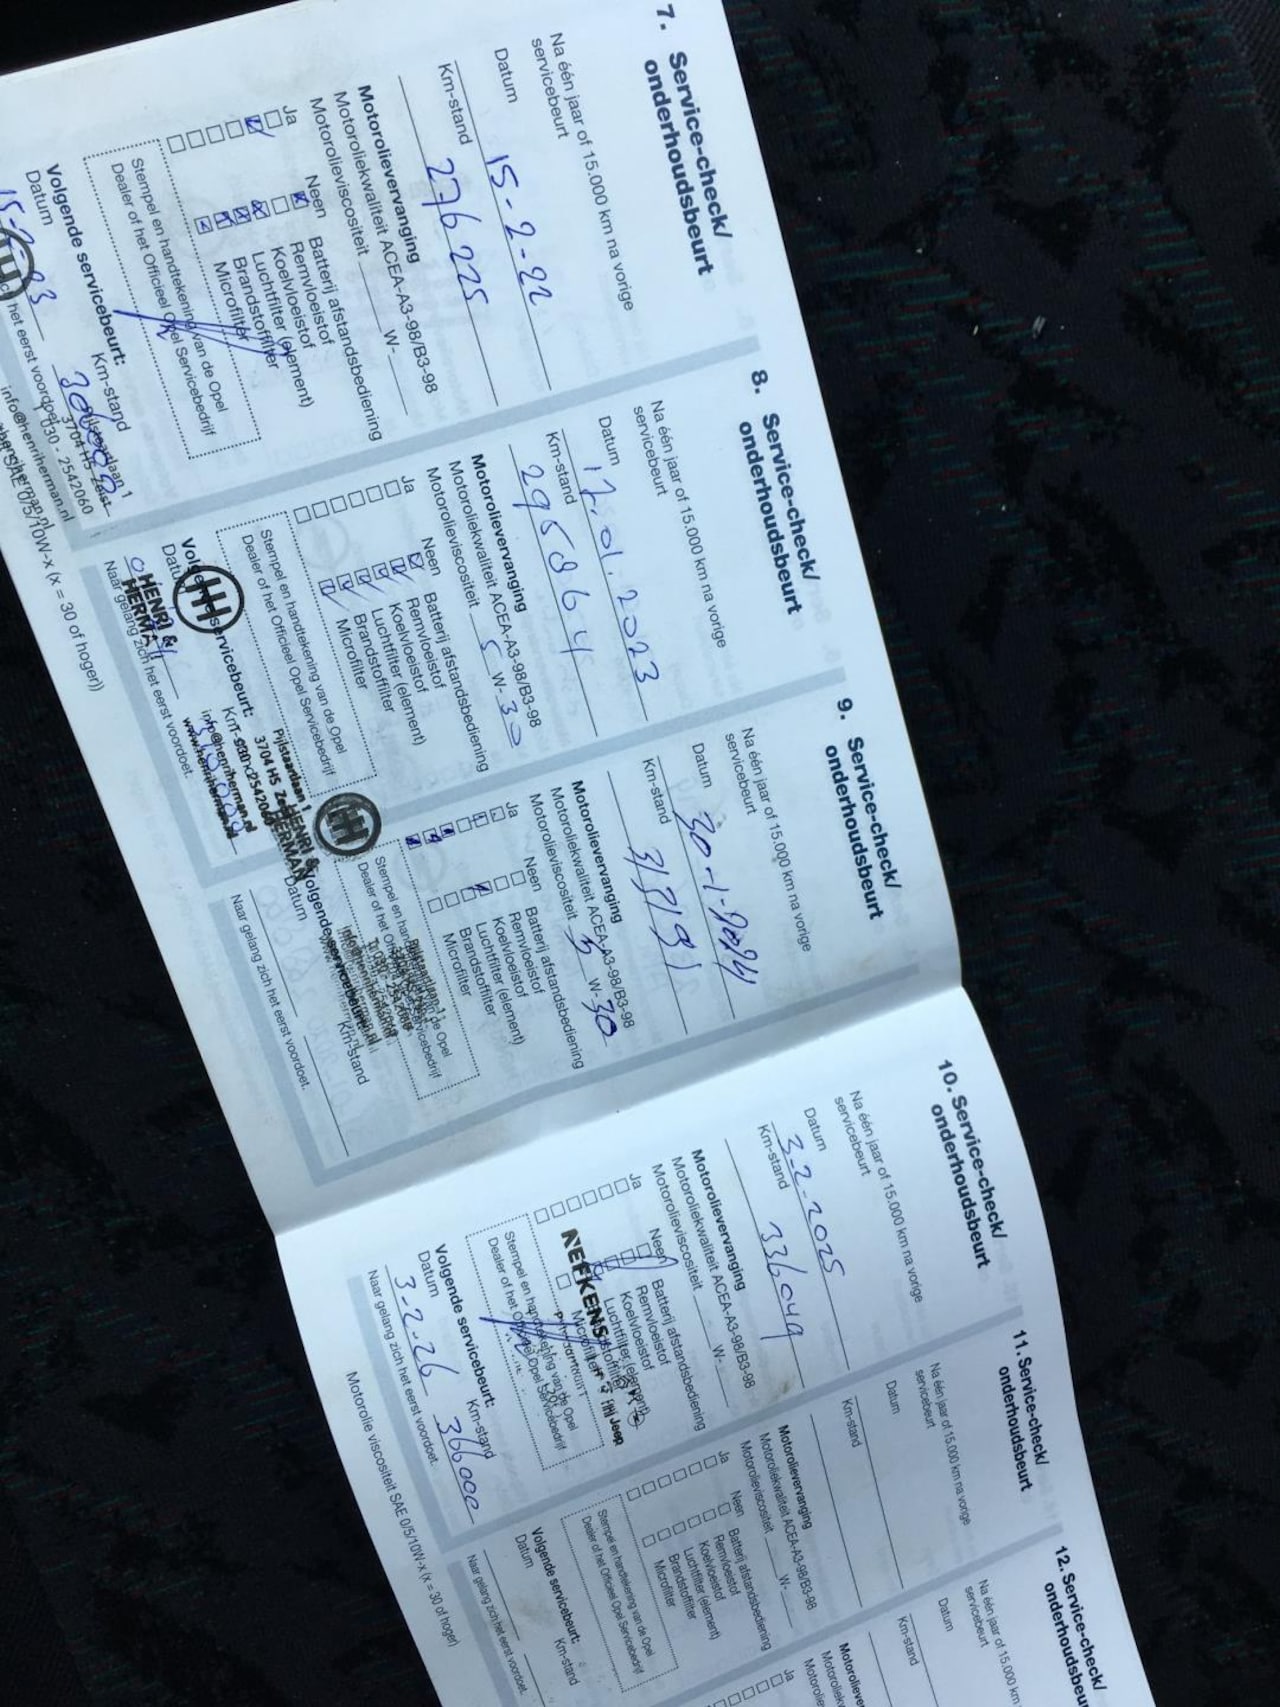 7. Service-check/
onderhoudsbeurt
Na één jaar of 15.000 km na vorige
servicebeurt
Datum 15-2-22
Km-stand 276225
Motorolievervanging
Motoroliekwaliteit ACEA-A3-98/B3-98
Motorolieviscositeit W-
Ja Neen
Batterij afstandsbediening
Remvloeistof
Koelvloeistof
Luchtfilter (element)
Brandstoffilter
Microfilter
Stempel en handtekening van de Opel
Dealer of het Officieel Opel Servicebedrijf
Volgende servicebeurt:
Datum Km-stand
het eerst voordoet.
3704 HS Zeist
030 - 2542060
info@henriherman.nl
SAE 0/5/10W-x (x = 30 of hoger))
8. Service-check/
onderhoudsbeurt
Na één jaar of 15.000 km na vorige
servicebeurt
Datum 17.01.2023
Km-stand 295864
Motorolievervanging
Motoroliekwaliteit ACEA-A3-98/B3-98
Motorolieviscositeit 5 W-30
Ja Neen
Batterij afstandsbediening
Remvloeistof
Koelvloeistof
Luchtfilter (element)
Brandstoffilter
Microfilter
Stempel en handtekening van de Opel
Dealer of het Officieel Opel Servicebedrijf
servicebeurt:
HENRI &
HERMAN
Pijlstaartlaan 1
3704 HS
info@henriherman.nl
www.henriherman.nl
Naar gelang zich het eerst voordoet.
9. Service-check/
onderhoudsbeurt
Na één jaar of 15.000 km na vorige
servicebeurt
Datum 30-1-2024
Km-stand
Motorolievervanging
Motoroliekwaliteit ACEA-A3-98/B3-98
Motorolieviscositeit 5 W-30
Ja Neen
Batterij afstandsbediening
Remvloeistof
Koelvloeistof
Luchtfilter (element)
Brandstoffilter
Microfilter
HENRI &
HERMAN
Volgende servicebeurt:
Datum Km-stand
Naar gelang zich het eerst voordoet.
10. Service-check/
onderhoudsbeurt
Na één jaar of 15.000 km na vorige
servicebeurt
Datum 3-2-2025
Km-stand 336049
Motorolievervanging
Motoroliekwaliteit ACEA-A3-98/B3-98
Motorolieviscositeit W-
Ja Neen
Batterij afstandsbediening
Remvloeistof
Koelvloeistof
Luchtfilter (element)
Microfilter
NEFKENS
Jeep
Stempel en handtekening van de Opel
Dealer of het Officieel Opel Servicebedrijf
Volgende servicebeurt:
Datum Km-stand
3-2-26 366000
Naar gelang zich het eerst voordoet.
Motorolie viscositeit SAE 0/5/10W-x (x = 30 of hoger)
11. Service-check/
onderhoudsbeurt
Na één jaar of 15.000 km na vorige
servicebeurt
Datum
Km-stand
Motorolievervanging
Motoroliekwaliteit ACEA-A3-98/B3-98
Motorolieviscositeit W-
Ja Neen
Batterij afstandsbediening
Remvloeistof
Koelvloeistof
Luchtfilter (element)
Brandstoffilter
Microfilter
Stempel en handtekening van de Opel
Dealer of het Officieel Opel Servicebedrijf
Volgende servicebeurt:
Datum Km-stand
Naar gelang zich het eerst voordoet.
12. Service-check/
onderhoudsbeu
Na één jaar of 15.000 km
servicebeurt
Datum
Km-stand
Motorolieve
Motoroliekw
Motorolie
Ja